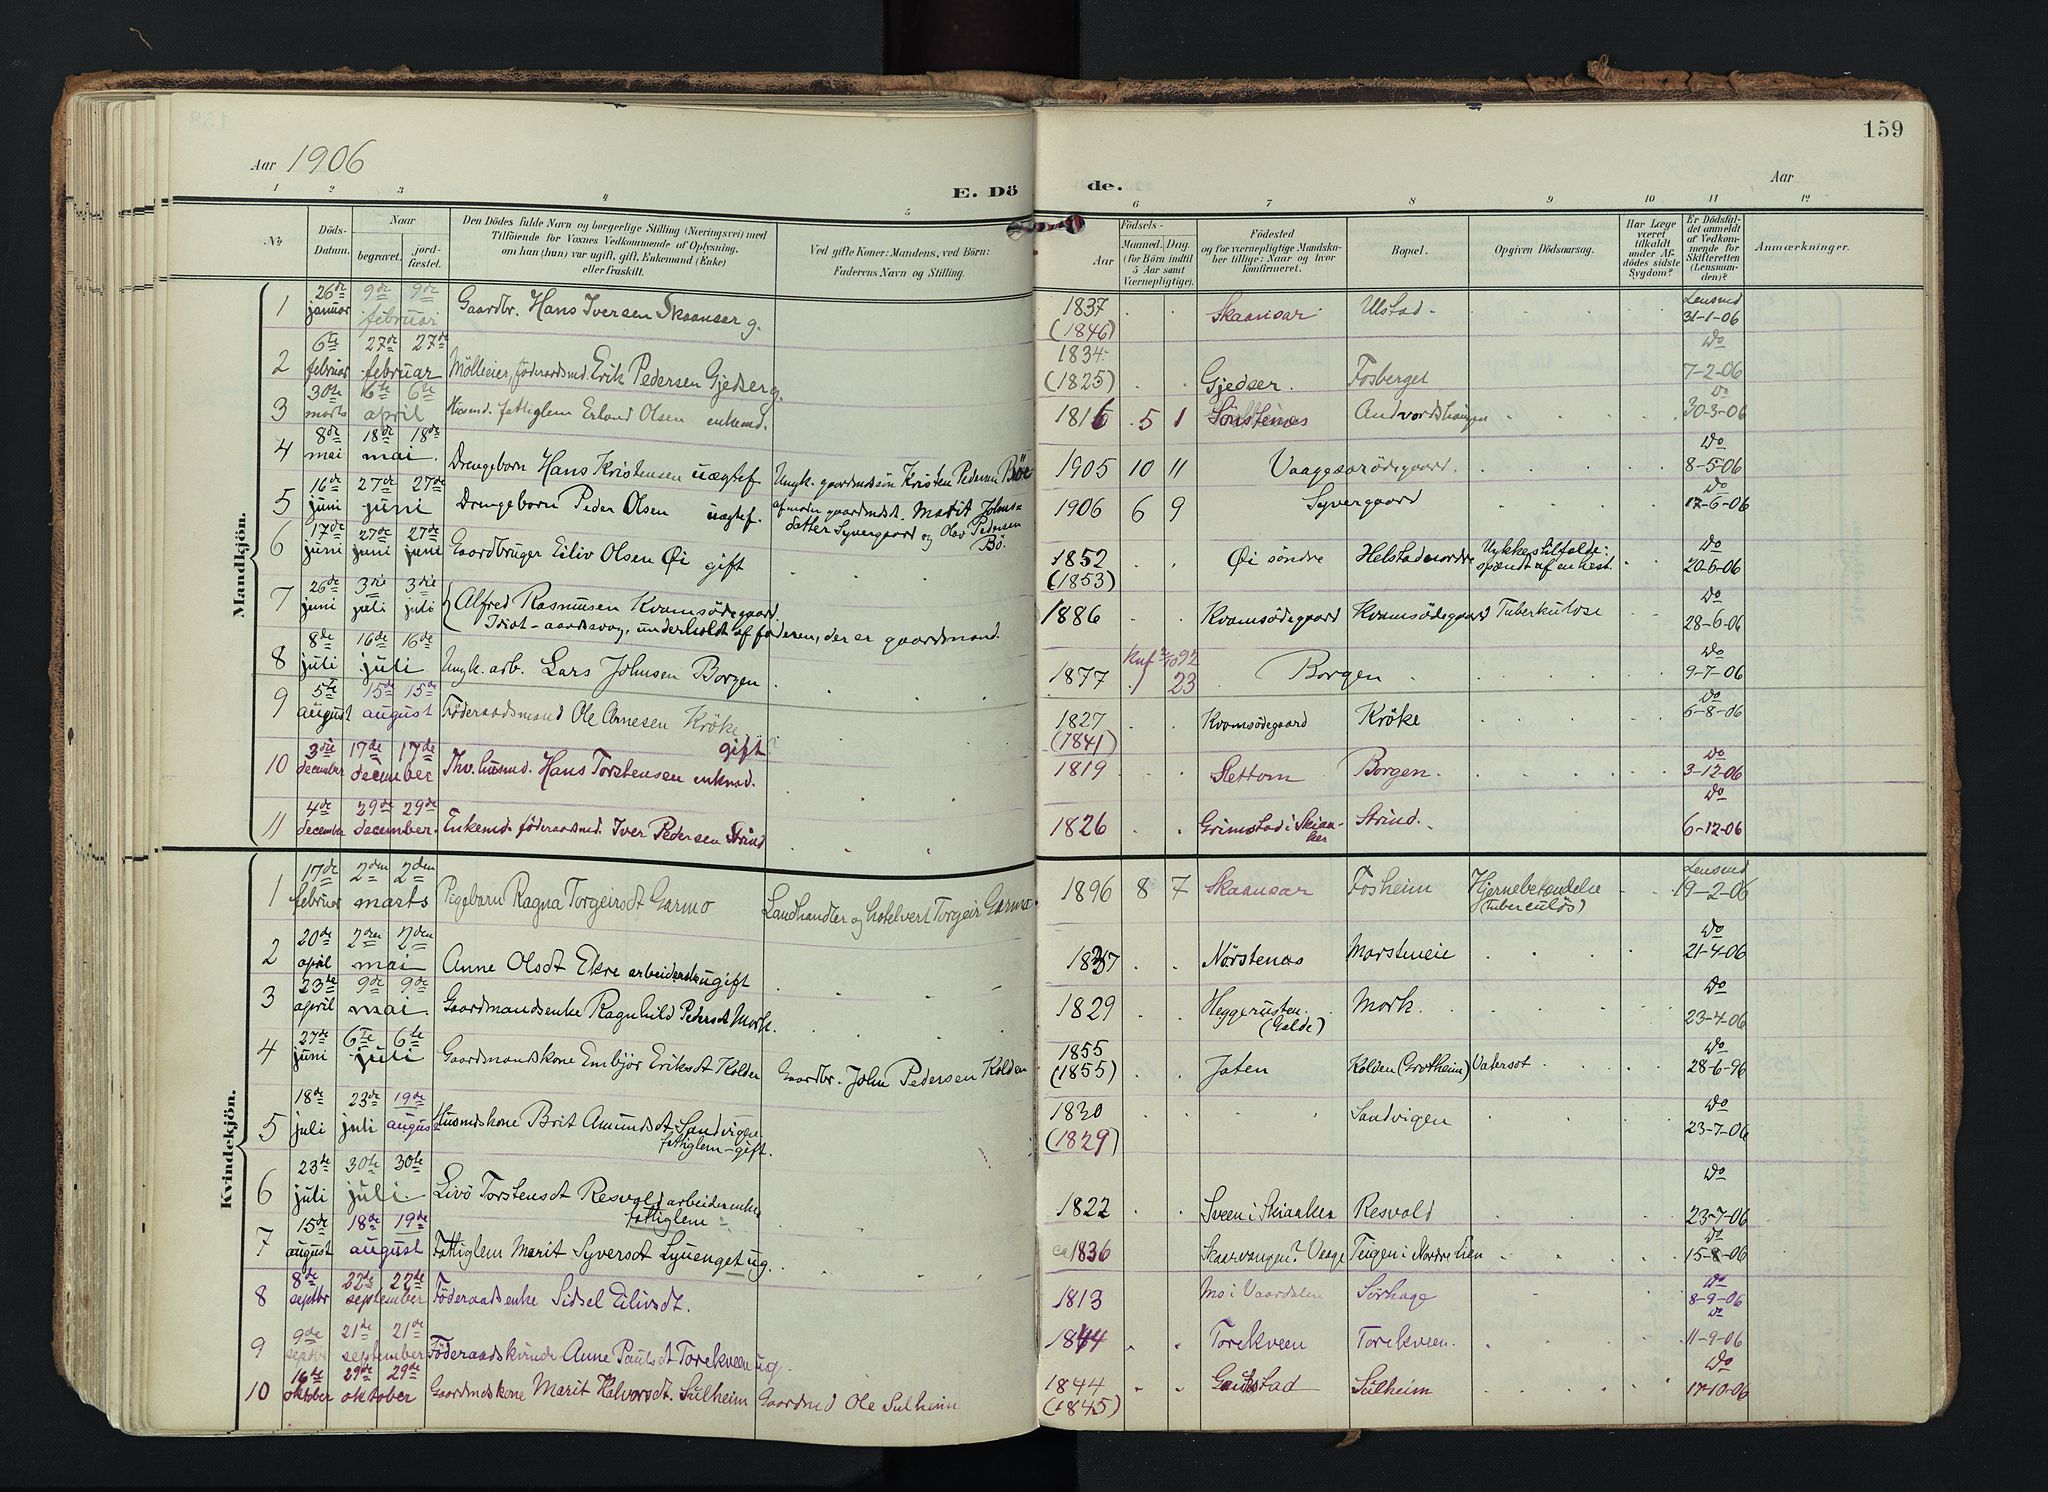 159
Aar 1906
Aar
1 2 3 4 5 6 7 8 9 10 11 12
E. Dö de.
No
Döds-Datum.
Naar
begravet.
jord-fæstet.
Den Dödes fulde Navn og borgerlige Stilling (Næringsvei) med
Tilföiende for Voxnes Vedkommende af Oplysning,
om han (hun) var ugift, gift, Enkemand (Enke)
eller fraskilt.
Ved gifte Koner: Mandens, ved Börn:
Faderens Navn og Stilling.
Födsels-
Aar
Maaned. Dag.
(for Börn indtil
5 Aar samt
Værnepligtige).
Födested
og for værnepligtige Mandska-
ber tillige: Naar og hvor
konfirmeret.
Bopæl.
Opgiven Dödsaarsag.
Har Læge
været
tilkaldt
under Af-
dödes sidste
Sygdom?
Er Dödsfal-
det anmeldt
af Vedkom-
mende for
Skifteretten
(Lensman-
den)?
Anmærkninger.
Mandkjön.
1 26de januar 9de 9de februar Gaardbr. Hans Iversen Skaansar g. 1837 (1846) Skaansar Ulstad Lensmd 31-1-06
2 6te februar 27de 27de februar Möllerier, föderaadsmd. Erik Pedersen Gjedser g. 1834 (1825) Gjedser Fosberget Do 7-2-06
3 30te marts 6te 6te april Husmd. fattiglem Erland Olsen enkemd. 1816 5 1 Sönstenes Andvordshaugen Do 30-3-06
4 8de mai 18de 18de mai Drengebarn Hans Kristensen uægtef. Ungk. gaardmdssön Kristen Pedersen Böe 1905 10 11 Vaaggaarödegaard Do 8-5-06
5 16de juni 27de 27de juni Drengebarn Peder Olsen uægtef. af moder gaardmdsdt. Marit Johns-
datter Syvergaard og Olav Pedersen Bö. 1906 6 9 Syvergaard Do 17-6-06
6 17de juni 27de juni 27de juni Gaardbruger Eiliv Olsen Öi gift 1852 (1853) Öi söndre Helstadnordre Ulykkestilfælde:
spændt af en hest. Do 20-6-06
7 26de juni 3die juli 3die juli Alfred Rasmusen Kvamsödegaard
Idiot - aandssvag, underholdt af faderen, der er gaardmand. 1886 Kvamsödegaard Kvamsödegaard Tuberkulose Do 28-6-06
8 8de juli 16de 16de juli Ungk. arb. Lars Johnsen Borgen 1877 Knf 2/10 92 1 23 Borgen Do 9-7-06
9 5te august 15de 15de august Föderaadsmand Ole Arnesen Kröke gift 1827 (1841) Kvamsödegaard Kröke Do 6-8-06
10 3die december 17de 17de december Fhv. husmd. Hans Torstensen enkmd. 1819 Slettom Borgen Do 3-12-06
11 4de december 29de 29de december. Enkemd. föderaadsmd. Iver Pedersen Strind 1826 Grimstad i Skiaa-
ker Strind. Do 6-12-06
Kvindekjön.
1 17de februar 2den 2den marts Pigebarn Ragna Torgeirsdt Garmo Landhandler og hotelvert Torgeir Garmo 1896 8 7 Skaansar Fosheim Hjernebetændelse
(tuberculös) Lensmd 19-2-06
2 20de april 2den 2den mai Anne Olsdt Ekre arbeiderske ugift 1837 Nörstenes Marstineie Do 21-4-06
3 23de april 9de 9de mai. Gaardmandsenke Ragnhild Pedersdt Mork. 1829 Heggerusten.
(Galde) Mork. Do 23-4-06
4 27de juni 6te 6te juli Gaardmandskone Embjör Eriksdt Kolden Gaardbr. John Pedersen Kolden 1855 (1855) Jaten Kolden (Grotheim) Vatersot Do 28-6-96
5 18de juli 23de juli 19de august Husmdskone Brit Amundsdt Sandvigen
fattiglem - gift. 1830 (1829) Sandvigen Do 23-7-06
6 23de juli 30te 30te juli. Livö Torstensdt Resvold arbeiderenke
fattiglem 1822 Sveen i Skiaaker Resvold Do 23-7-06
7 15de august 18de 19de august Fattiglem Marit Syversdt Lyuenget ug. ca 1836 Skaarvangen? Vaage Teigen i Nordre hen Do 15-8-06
8 8de septbr 22de 22de september Föderaadsenke Sidsel Eilivsdt. 1813 Mo i Vaardalen Sörhage Do 8-9-06
9 9de septbr 21de 21de september Föderaadskvinde Anne Paulsdt Torekveen ug. 1844 Torekveen Torekveen. Do 11-9-06
10 16de oktober 29de 29de oktober Gaardmdskone Marit Halvorsdt. Sulheim Gaardmd Ole Sulheim 1844 (1845) Gaukstad Sulheim Do 17-10-06